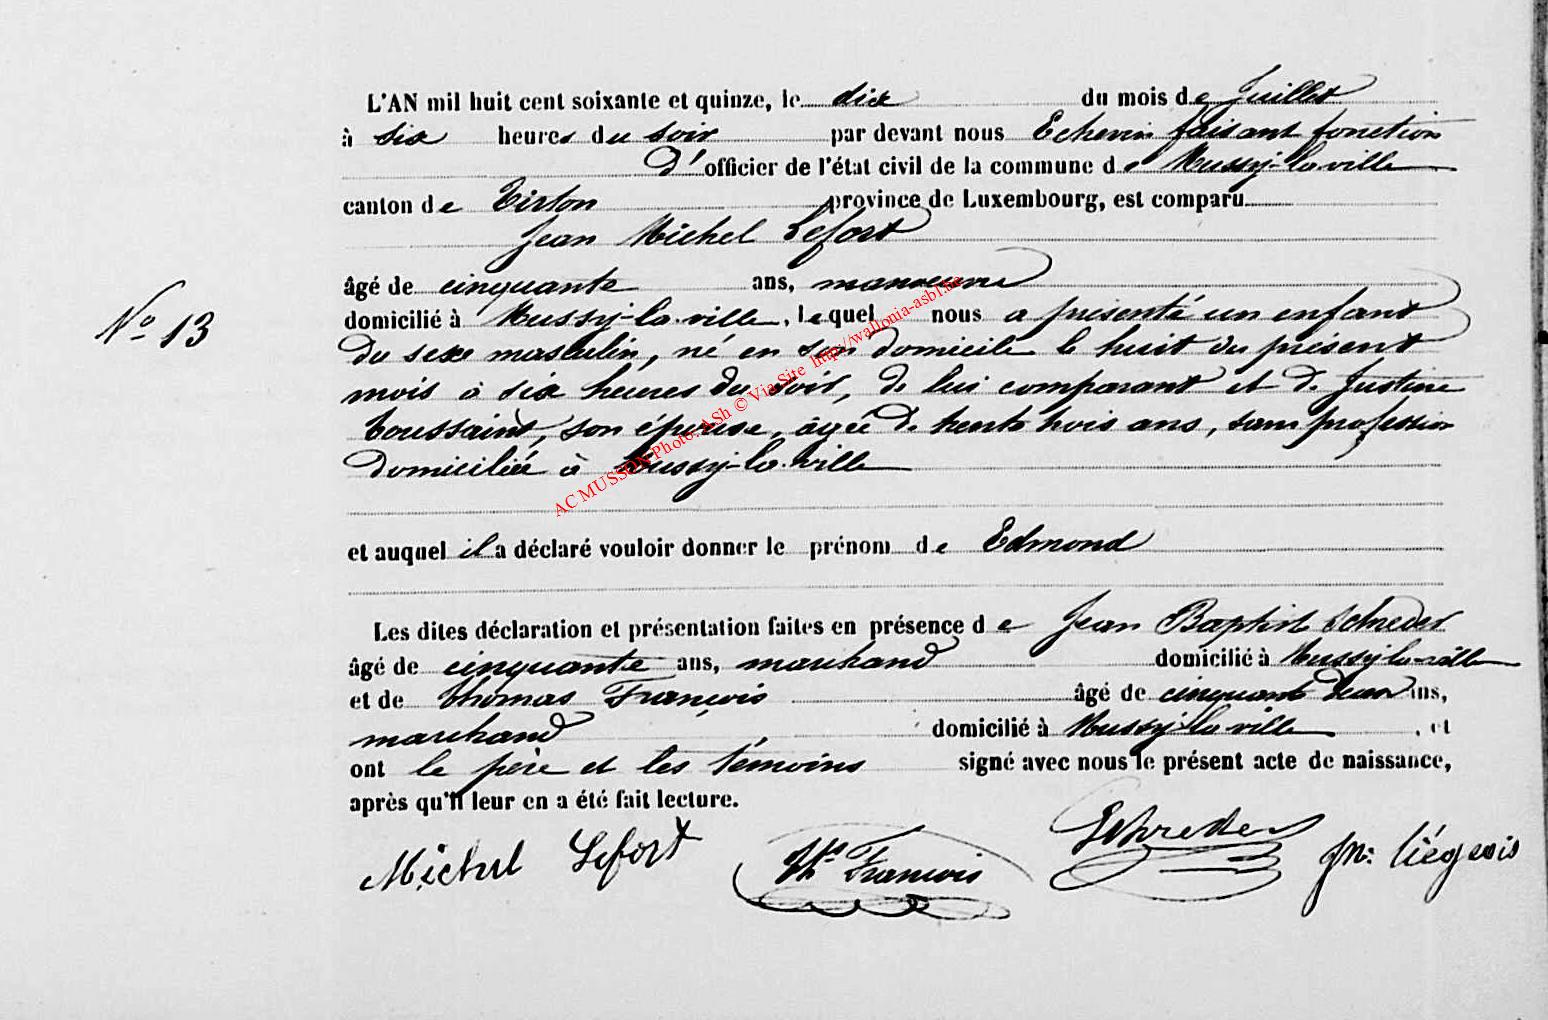 L'AN mil huit cent soixante et quinze, le dix du mois de Juillet
à six heures du soir par devant nous Echevin faisant fonction
D'officier de l'état civil de la commune de Mussy-la-ville
canton de Virton province de Luxembourg, est comparu
Jean Michel Lefort
âgé de cinquante ans, manoeuvre
N° 13
domicilié à Mussy-la-ville, lequel nous a présenté un enfant
du sexe masculin, né en son domicile le huit du présent
mois à six heures du soir, de lui comparant et de Justine
Toussaint, son épouse, âgée de trente trois ans, sans profession
domiciliée à Mussy-la-ville
AC MUSSON Photo: ASh © Via Site http://wallonia-asbl.be
et auquel il a déclaré vouloir donner le prénom de Edmond
Les dites déclaration et présentation faites en présence de Jean Baptiste Schreder
âgé de cinquante ans, marchand domicilié à Mussy-la-ville
et de Thomas François âgé de cinquante deux ans,
marchand domicilié à Mussy-la-ville, et
ont le père et les témoins signé avec nous le présent acte de naissance,
après qu'il leur en a été fait lecture.
Michel Lefort Th^s François Schreder Jn: Liégeois